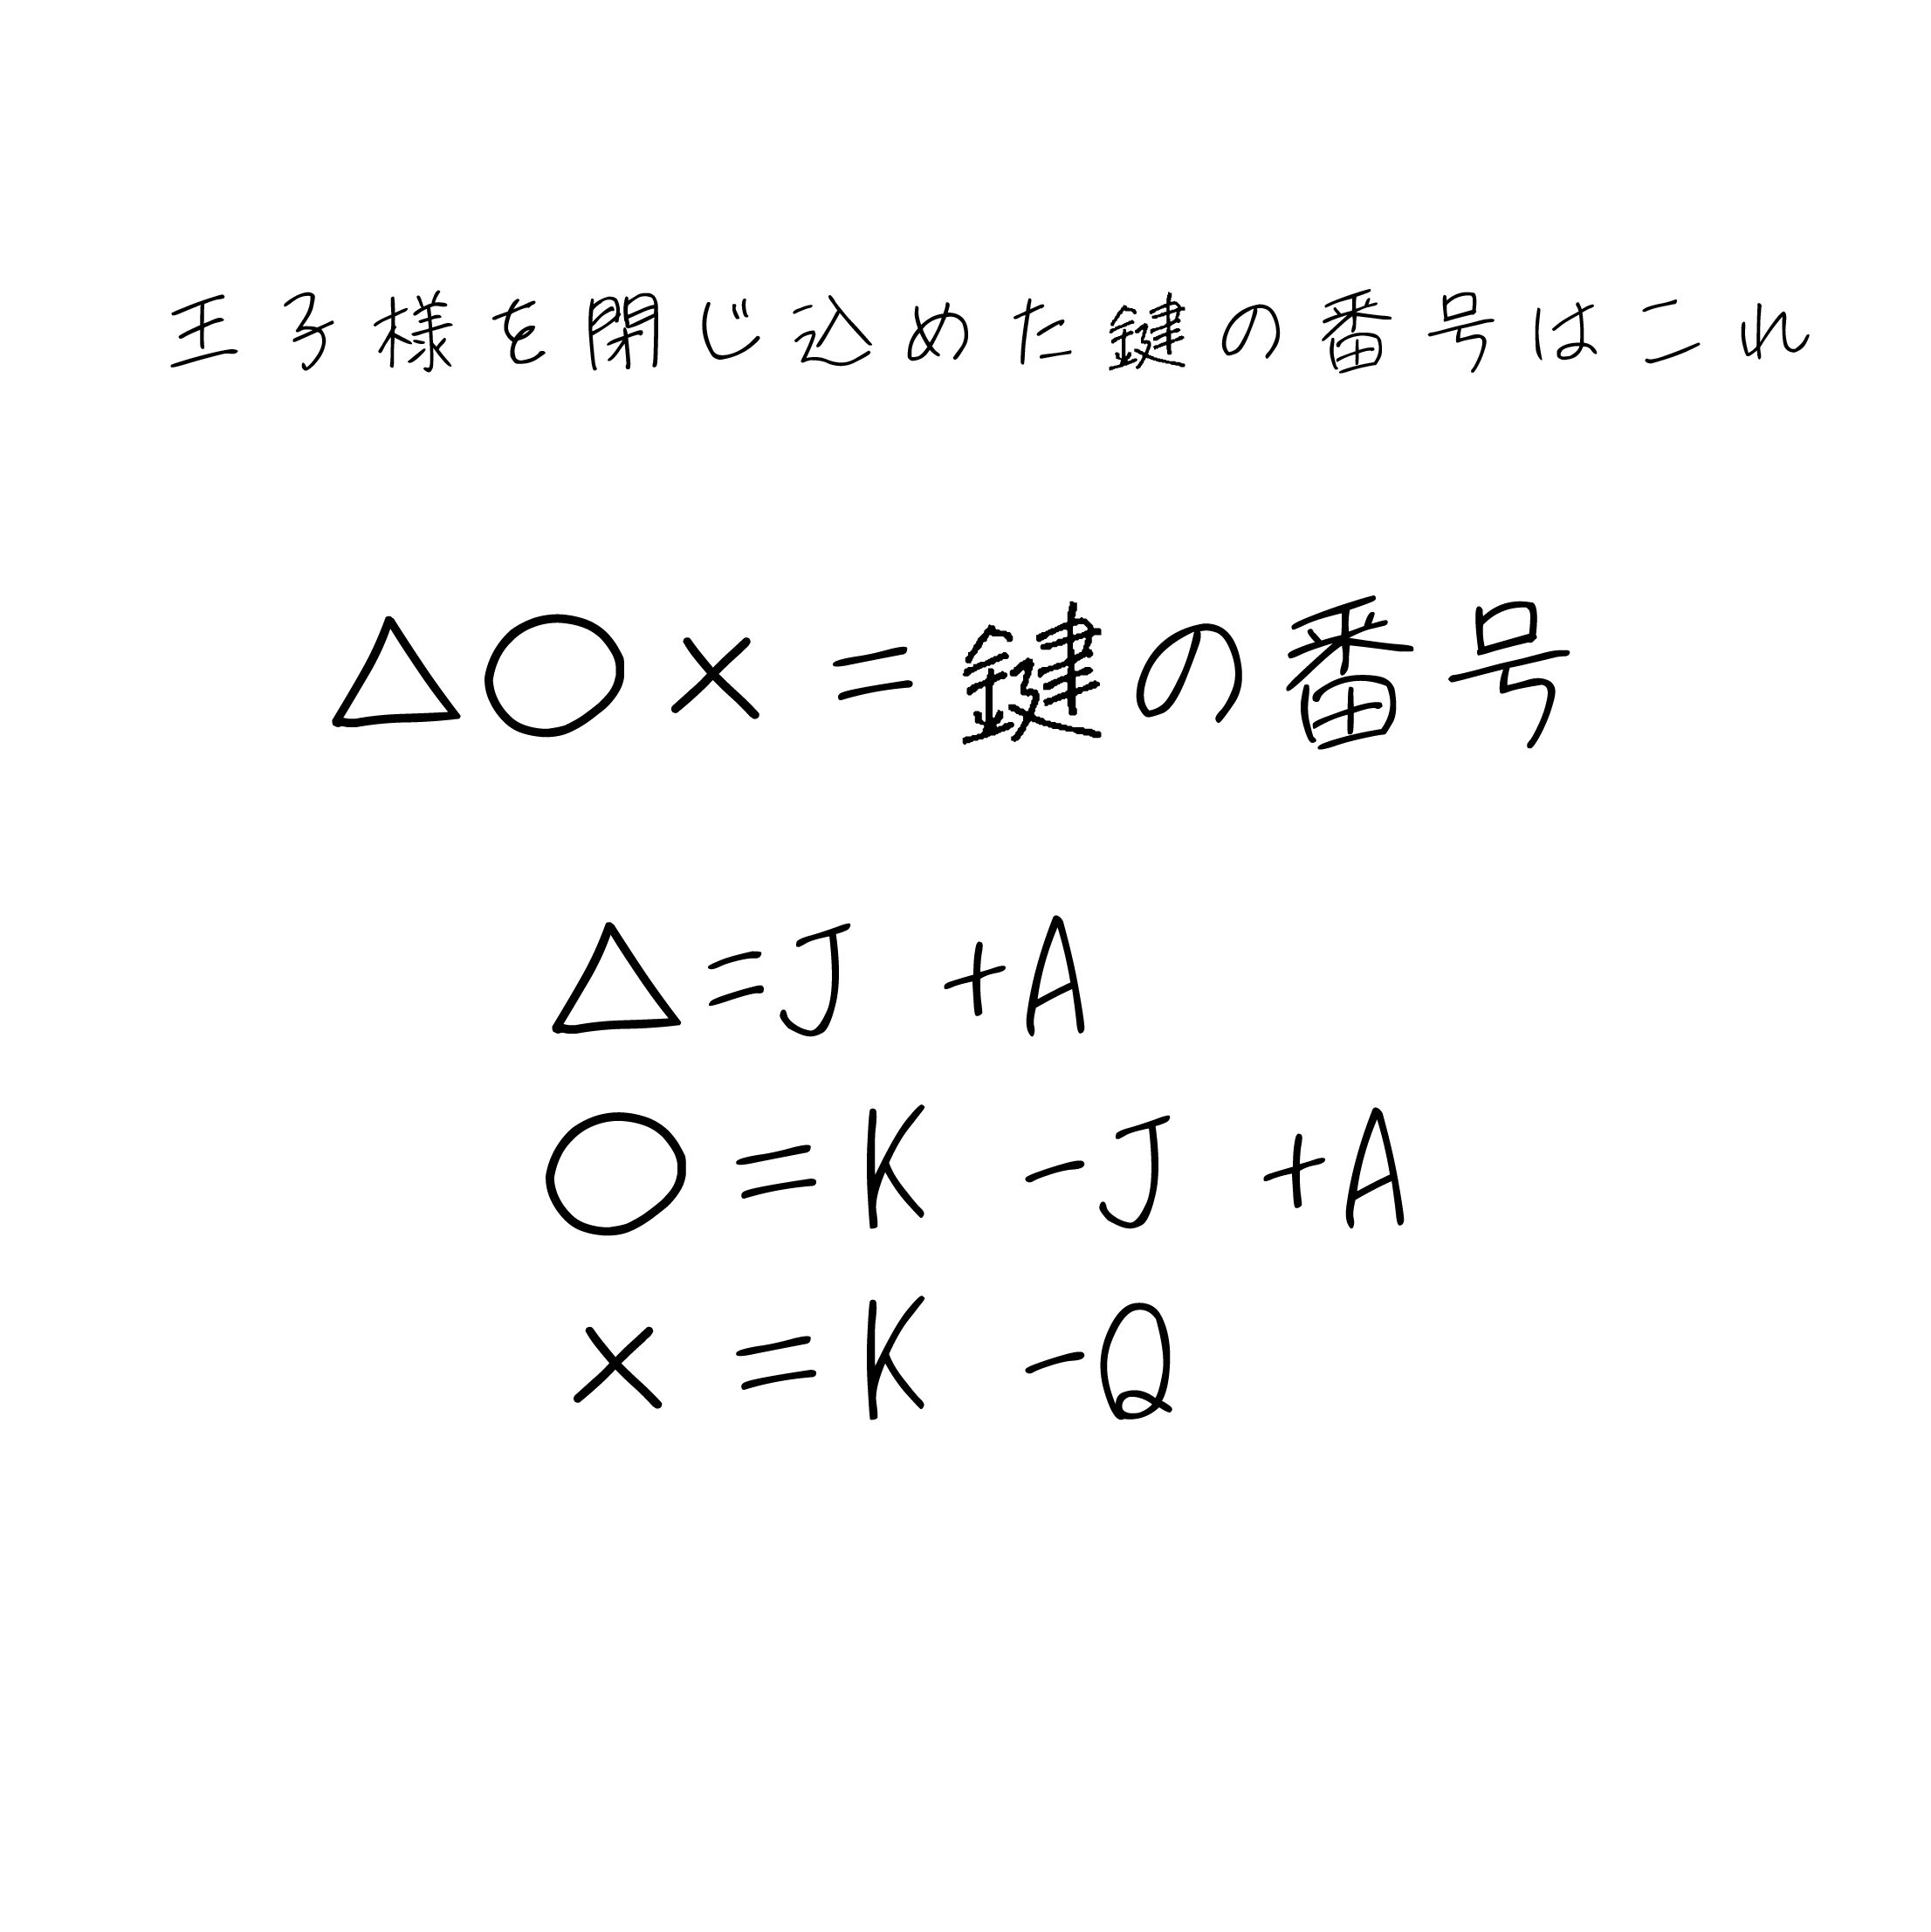 王子様を閉じ込めた鍵の番号はこれ
△○×=鍵の番号
△=J +A
○=K -J +A
×=K -Q